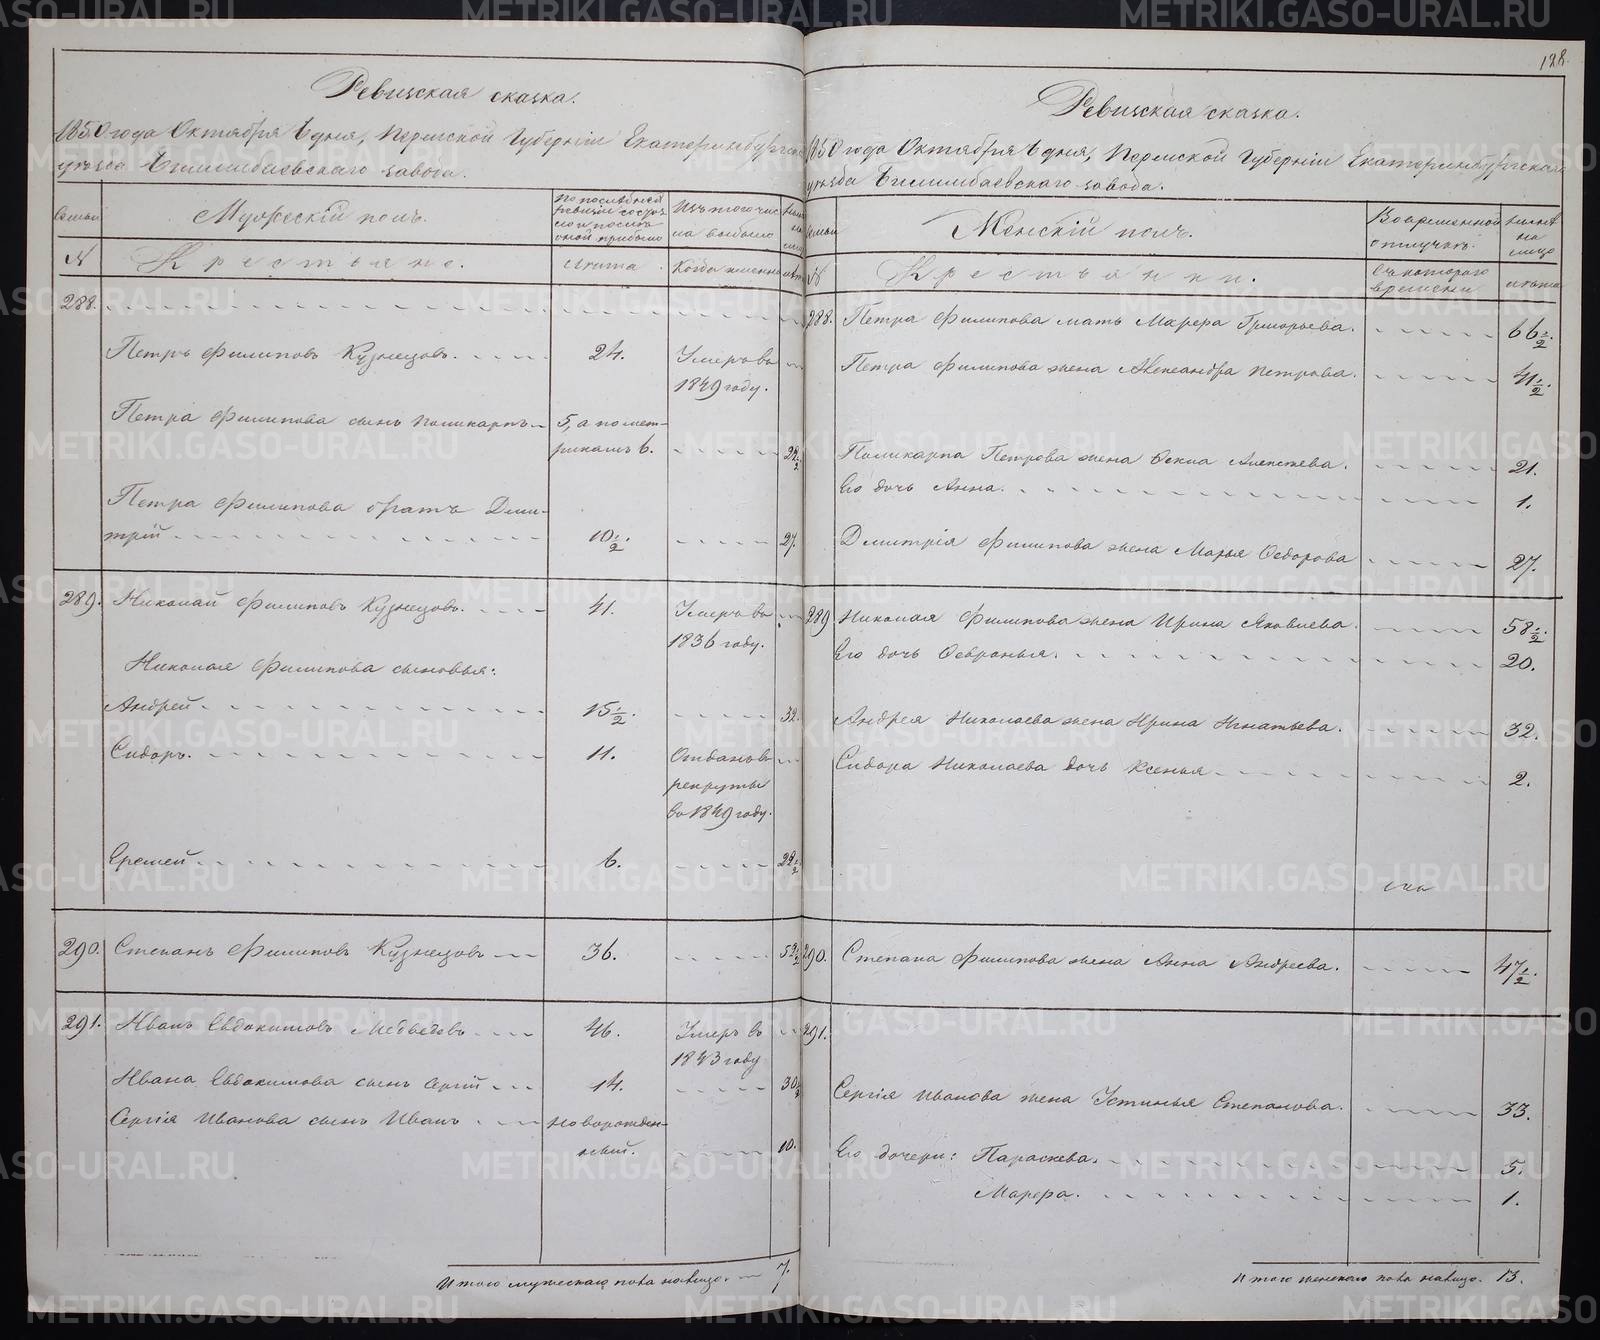 Ревизская сказка.
1850 года Октября 6 дня, Пермской Губернии Екатеринбургска
уезда Билимбаевского завода.
Семьи
Мужеский полъ.
По последней
ревизии состоя
ло и после
оной прибыло
Изъ того чис
ла выбыло
№
Крестьяне.
Лета.
Когда именно
288.
Петръ Филиповъ Кузнецовъ. 24. Умеръ въ
1849 году.
Петра Филипова сынъ Поликарпъ 5, а по мет-
рикамъ 6. 22 1/2
Петра Филипова братъ Дми-
трій 10 1/2. 27.
289. Николай Филиповъ Кузнецовъ. 41. Умеръ въ
1836 году.
Николая Филипова сыновья:
Андрей 15 1/2. 32.
Сидоръ. 11. Отданъ въ
рекруты
въ 1849 году.
Еремей 6. 22 1/2
290. Степанъ Филиповъ Кузнецовъ 36. 52 1/2
291. Иванъ Евдокимовъ Медведевъ 46. Умеръ въ
1843 году
Ивана Евдокимова сынъ Сергій 14. 30 1/2
Сергія Иванова сынъ Иванъ новорожден-
ный. 10.
Итого мужескаго пола налицо. 7.
128.
Ревизская сказка.
1850 года Октября 6 дня, Пермской Губерніи Екатеринбургскаго
уезда Билимбаевскаго завода.
Семьи
Женскій полъ.
Во временной
отлучке.
Ныне
на
лицо
№
Крестьянки.
Съ котораго
времени
лета
288. Петра Филипова мать Марфа Григорьева. 66 1/2.
Петра Филипова жена Александра Петрова. 41 1/2.
Поликарпа Петрова жена Фекла Алексеева. 21.
Его дочь Анна. 1.
Дмитрія Филипова жена Марья Федорова 27.
289 Николая Филипова жена Ирина Яковлева. 58 1/2.
Его дочь Февронья. 20.
Андрея Николаева жена Ирина Игнатьева. 32.
Сидора Николаева дочь Ксенья 2.
290. Степана Филипова жена Анна Андреева. 47 1/2.
291.
Сергія Иванова жена Устинья Степанова. 33.
Его дочери: Параскева. 5.
Марфа. 1.
Итого женскаго пола налицо. 13.
METRIKI.GASO-URAL.RU